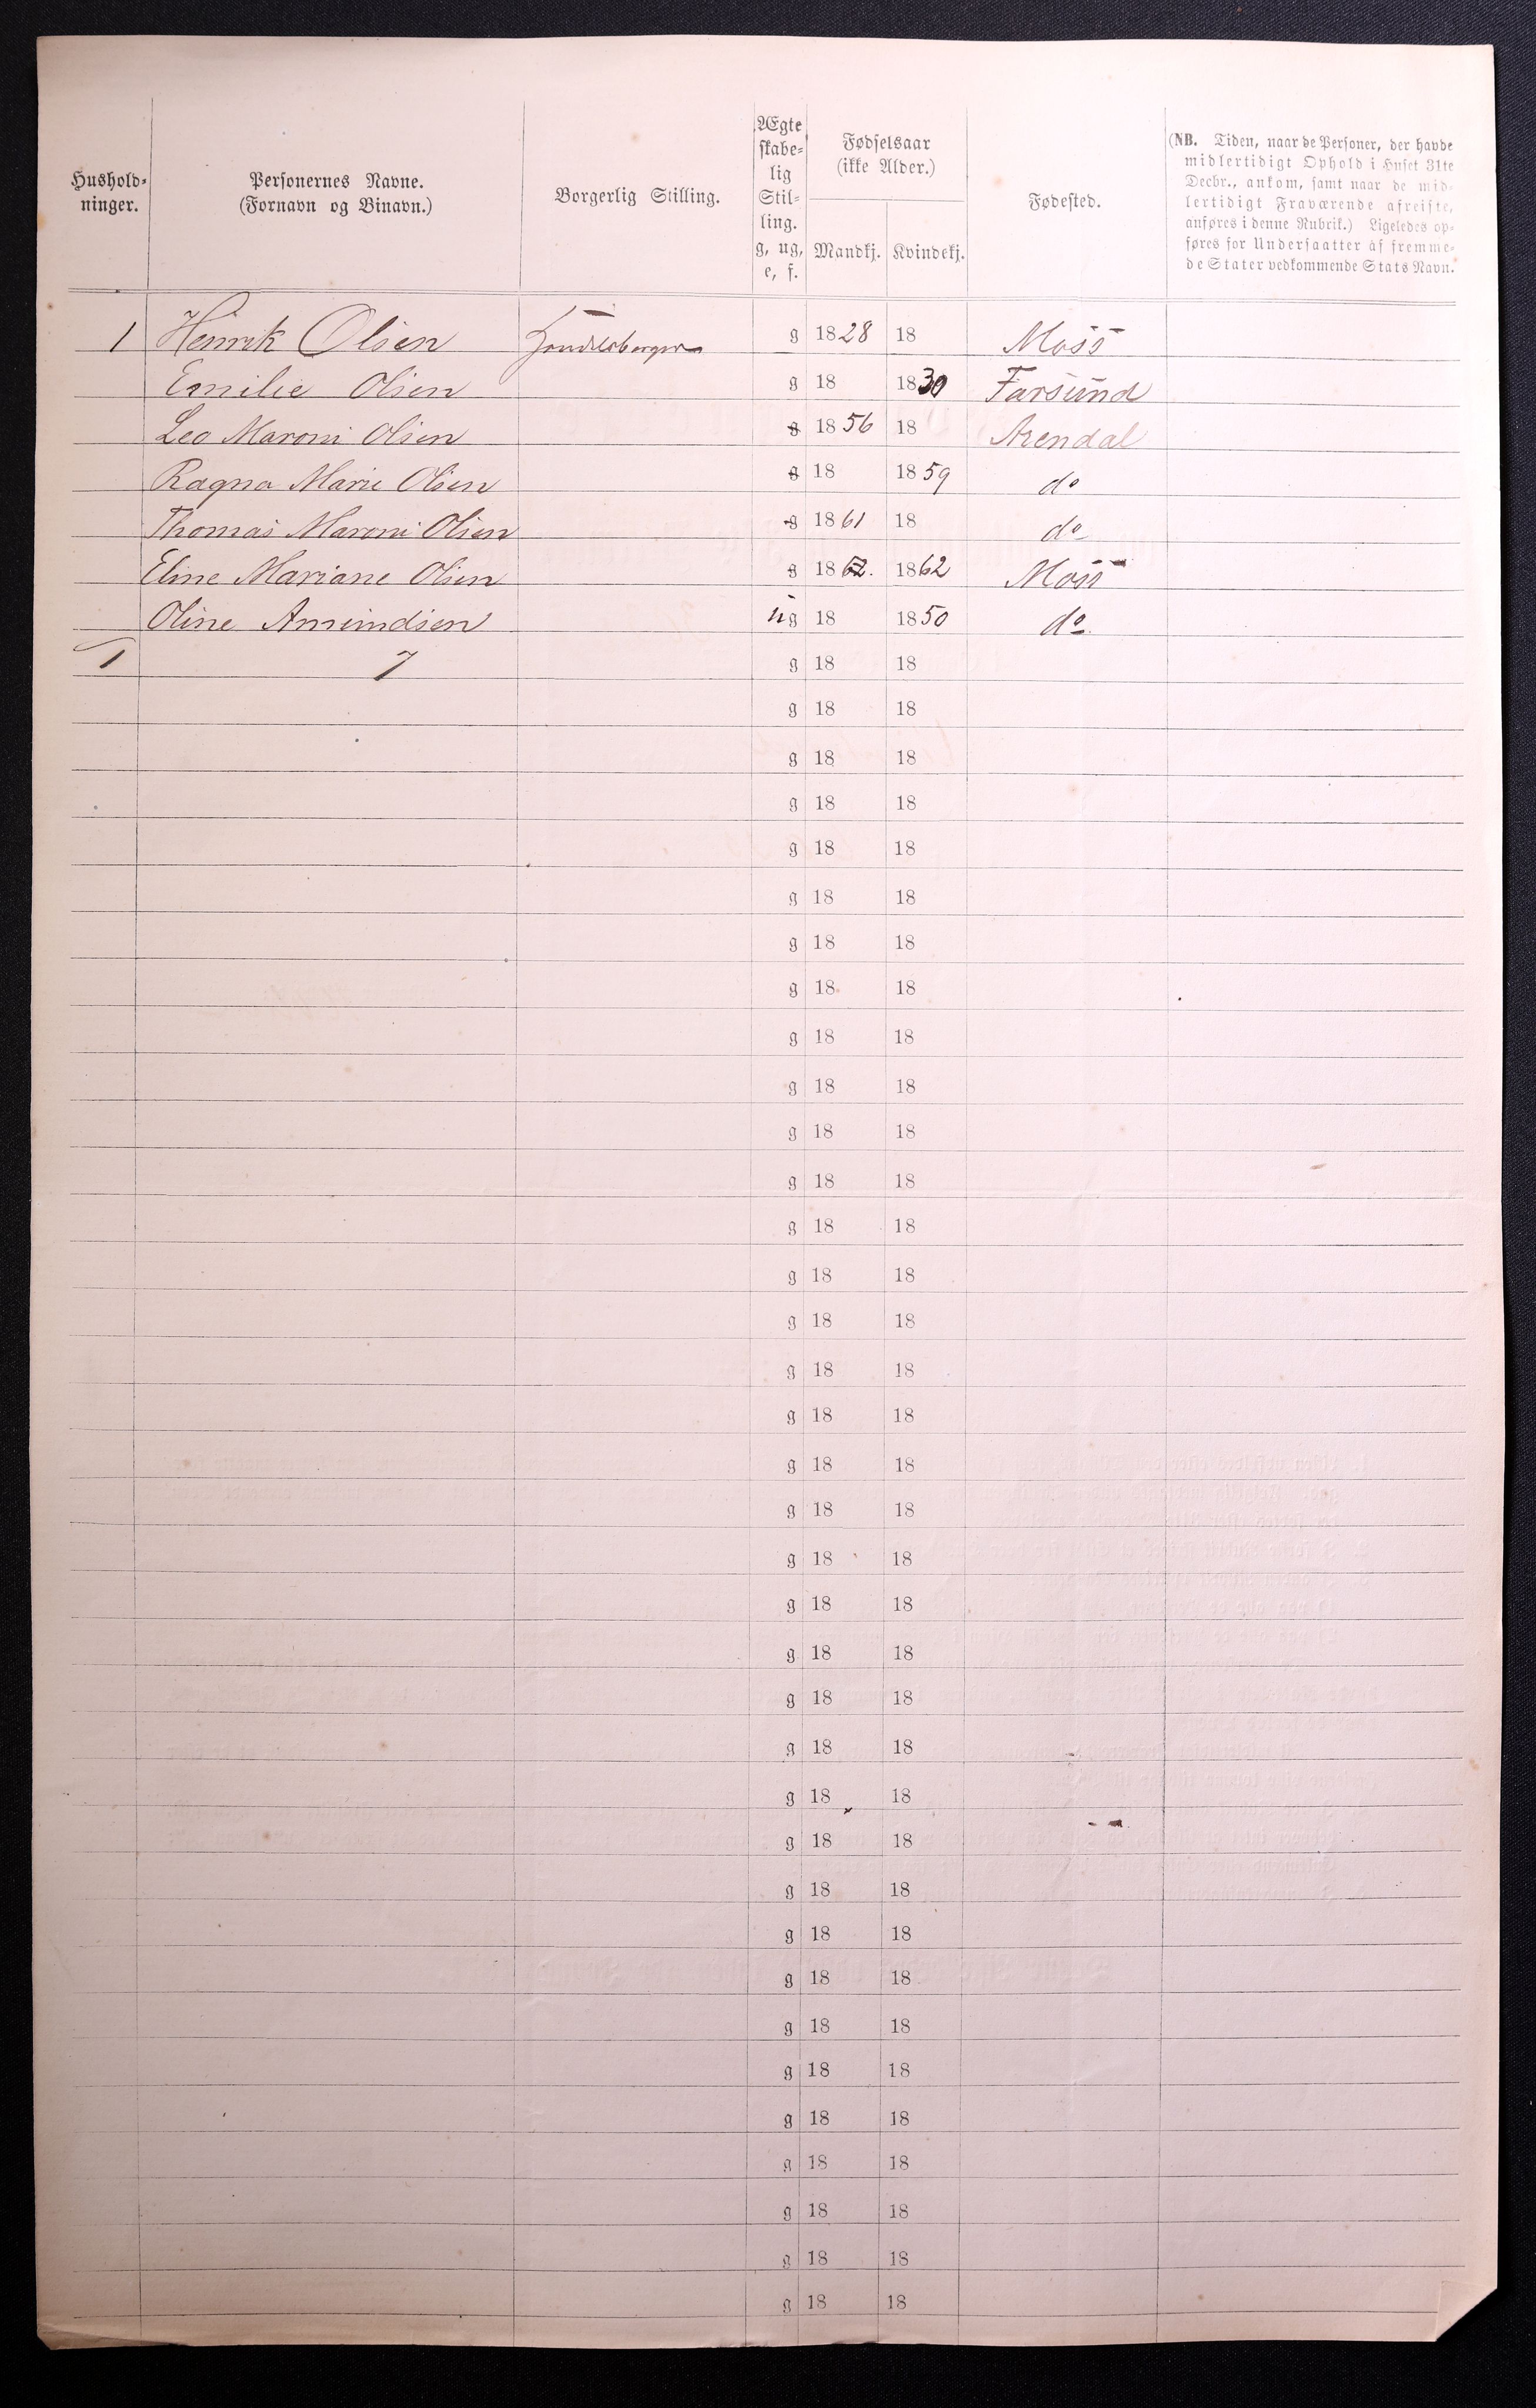 Hushold-
ninger.
Personernes Navne.
(Fornavn og Binavn.)
Borgerlig Stilling.
Ægte
skabe-
lig
Stil-
ling.
g, ug,
e, f.
Fødselsaar
(ikke Alder.)
Mandkj. Kvindekj.
Fødested.
(NB. Tiden, naar de Personer, der havde
midlertidigt Ophold i Huset 31te
Decbr., ankom, samt naar de mid-
lertidigt Fraværende afreiste,
anføres i denne Rubrik.) Ligeledes op-
føres for Undersaatter af fremme-
de Stater vedkommende Stats Navn.
1 Henrik Olsen Handelsborger g 1828 18 Moss
Emilie Olsen g 18 1830 Farsund
Leo Maroni Olsen g 1856 18 Arendal
Ragna Marie Olsen g 18 1859 do
Thomas Maroni Olsen g 1861 18 do
Eline Mariane Olsen g 1862. 1862 Moss
Oline Amundsen ug 18 1850 do.
1 7 g 18 18
g 18 18
g 18 18
g 18 18
g 18 18
g 18 18
g 18 18
g 18 18
g 18 18
g 18 18
g 18 18
g 18 18
g 18 18
g 18 18
g 18 18
g 18 18
g 18 18
g 18 18
g 18 18
g 18 18
g 18 18
g 18 18
g 18 18
g 18 18
g 18 18
g 18 18
g 18 18
g 18 18
g 18 18
g 18 18
g 18 18
g 18 18
g 18 18
g 18 18
g 18 18
g 18 18